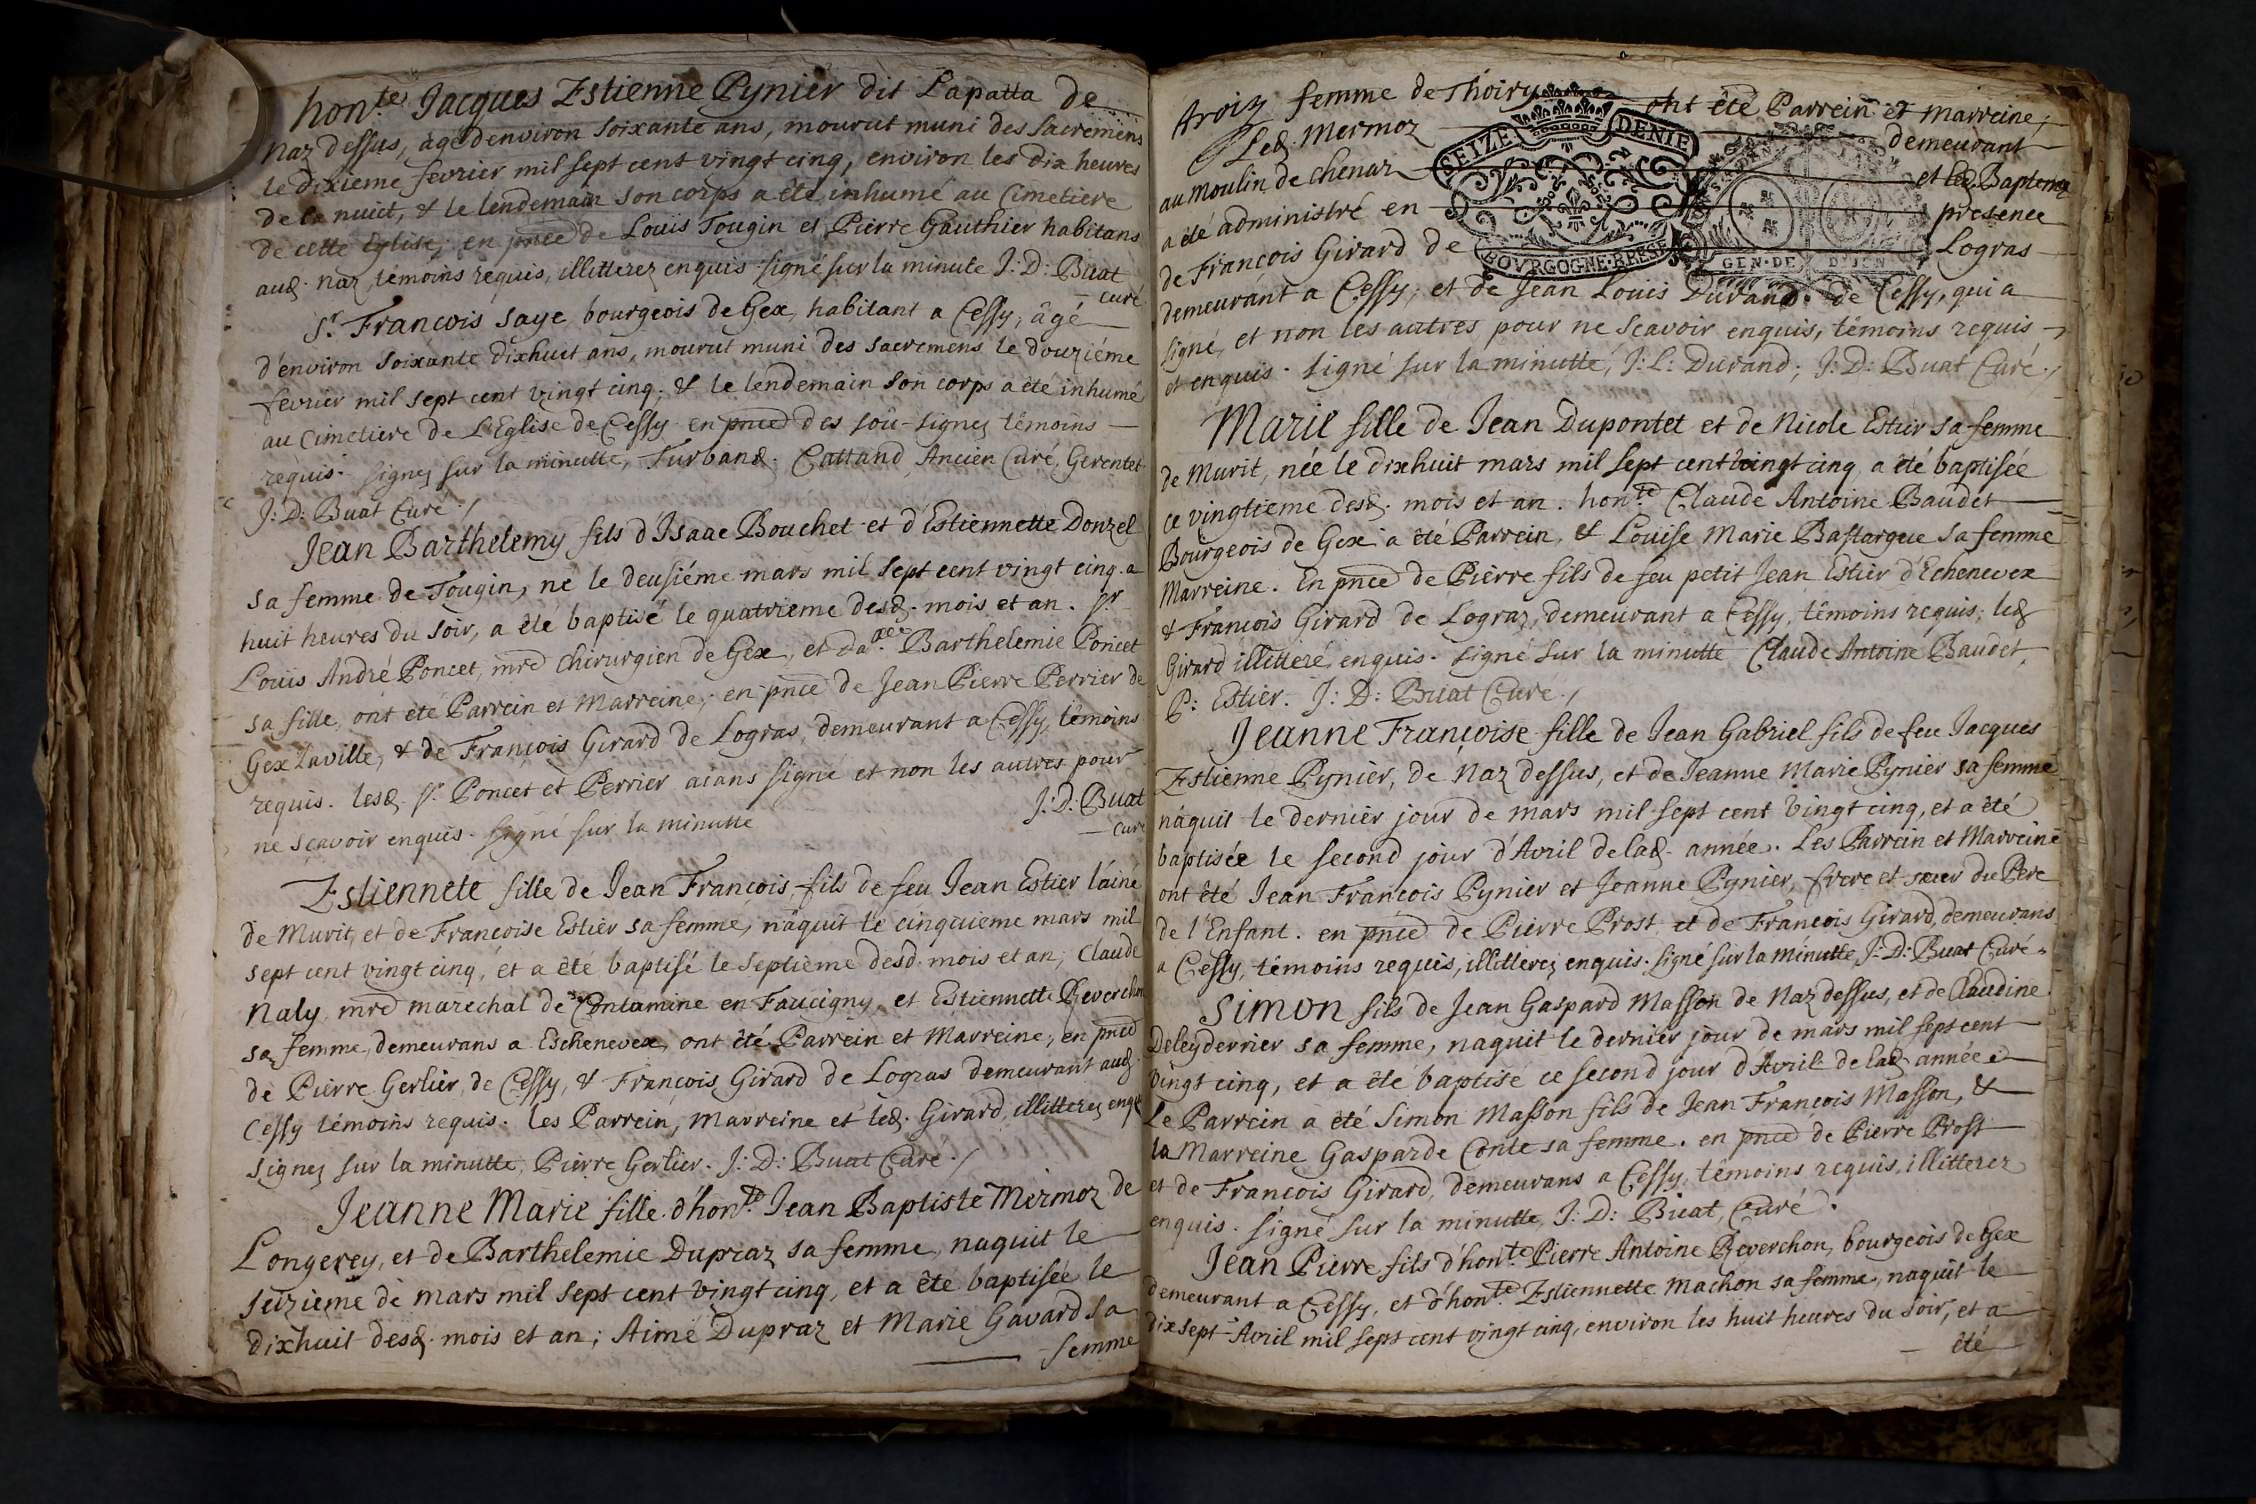 hon.te Jacques Estienne Pynier dit Lapatta de
Naz dessus, agé d'environ soixante ans, mourut muni des sacremens
le dixieme fevrier mil sept cent vingt cinq, environ les dix heures
de la nuict, & le lendemain son corps a été inhumé au Cimetiere
de cette Eglise, en pnce de Louis Tougin et Pierre Gauthier habitans
aud. Naz témoins requis, illitterez enquis signé sur la minute J: D: Buat
curé
Sr. François Saye bourgeois de Gex, habitant a Cessy, âgé
d'environ soixante dixhuit ans, mourut muni des sacremens le douziéme
fevrier mil sept cent vingt cinq, & le lendemain son corps a été inhumé
au Cimetiere de L'Eglise de Cessy en pnce des soû-signez témoins
requis. signez sur la minutte, Turband. Cattand Ancien Curé, Gerentet
J: D: Buat Curé ./
Jean Barthelemy fils d'Isaac Bouchet et d'Estiennette Donzel
sa femme de Tougin, né le deusiéme mars mil sept cent vingt cinq a
huit heures du soir, a été baptisé le quatrieme desd. mois et an. Sr.
Louis André Poncet, mre chirurgien de Gex, et Barthelemie Poncet
sa fille, ont été Parrein et Marreine, en pnce de Jean Pierre Perrier de
Gex laville, & de François Girard de Logras, demeurant a Cessy, témoins
requis. lesd. Sr. Poncet et Perrier aians signé et non les autres pour
ne sçavoir enquis. signé sur la minutte J: D: Buat
curé
Estiennete fille de Jean François, fils de feu Jean Estier l'áiné
de Murit, et de Françoise Estier sa femme, náquit le cinquieme mars mil
sept cent vingt cinq, et a été baptisé le septieme desd. mois et an, Claude
Naly mre marechal de Contamine en Faucigny, et Estiennette Reverchon
sa femme, demeurans a Eschenevex, ont été Parrein et Marreine, en pnce
de Pierre Gerlier, de Cessy, & François Girard de Logras demeurant aud.
Cessy témoins requis. les Parrein, Marreine et led. Girard illitterez enqs
signez sur la minutte, Pierre Gerlier. J: D: Buat Curé ./
Jeanne Marie fille d'hon.te Jean Baptiste Mermoz de
Longerey, et de Barthelemie Dupraz sa femme, naquit le
seizieme de mars mil sept cent vingt cinq, et a été baptisée le
dixhuit desd. mois et an; Aimé Dupraz et Marie Gavard sa
femme
Aroiz femme de Thoiry ont été Parrein et Marreine,
Led. Mermoz demeurant
au Moulin de Chenaz et led. Bapteme
a été administré en presence
de François Girard de Logras
SEIZE DENIE
BOVRGOGNE·BRESSE
GEN·DE
demeurant a Cessy, et de Jean Louis Durand de Cessy, qui a
signé, et non les autres pour ne scavoir enquis, témoins requis
et enquis. signé sur la minutte, J: L: Durand, J: D: Buat Curé ./
Marie fille de Jean Dupontet et de Nicole Estier sa femme
de Murit, née le dixhuit mars mil sept cent vingt cinq a été baptisée
ce vingtieme desd. mois et an. hon.te Claude Antoine Baudet
Bourgeois de Gex a été Parrein, & Louise Marie Bastarque sa femme
Marreine. En pnce de Pierre fils de feu petit Jean Estier d'Echenevex
& François Girard de Lograz, demeurant a Cessy, témoins requis, led
Girard illitteré, enquis. signé sur la minutte Claude Antoine Baudet,
P: Estier. J: D: Buat Curé ./
Jeanne Françoise fille de Jean Gabriel fils de feu Jacques
Estienne Pynier, de Naz dessus, et de Jeanne Marie Pynier sa femme
náquit le dernier jour de mars mil sept cent vingt cinq, et a été
baptisée le second jour d'Avril delad. année. Les Parrein et Marreine
ont été Jean François Pynier et Jeanne Pynier, frere et sœur du Pere
de l'Enfant. en pnce de Pierre Prost et de François Girard, demeurans
a Cessy, témoins requis, illitterez enquis. signé sur la minutte, J: D: Buat Curé.
Simon fils de Jean Gaspard Masson de Naz dessus, et de Claudine
Deleyderrier sa femme, naquit le dernier jour de mars mil sept cent
vingt cinq, et a été baptisé ce second jour d'Avril de lad. année
Le Parrein a été Simon Masson fils de Jean François Masson, &
la Marreine Gasparde Conte sa femme. en pnce de Pierre Prost
et de François Girard, demeurans a Cessy, témoins requis, illitterez
enquis. signé sur la minutte, J: D: Buat, Curé.
Jean Pierre fils d'hon.te Pierre Antoine Reverchon, bourgeois de Gex
demeurant a Cessy, et d'hon.te Estiennette Machon sa femme, naquit le
dixsept Avril mil sept cent vingt cinq, environ les huit heures du soir, et a
été